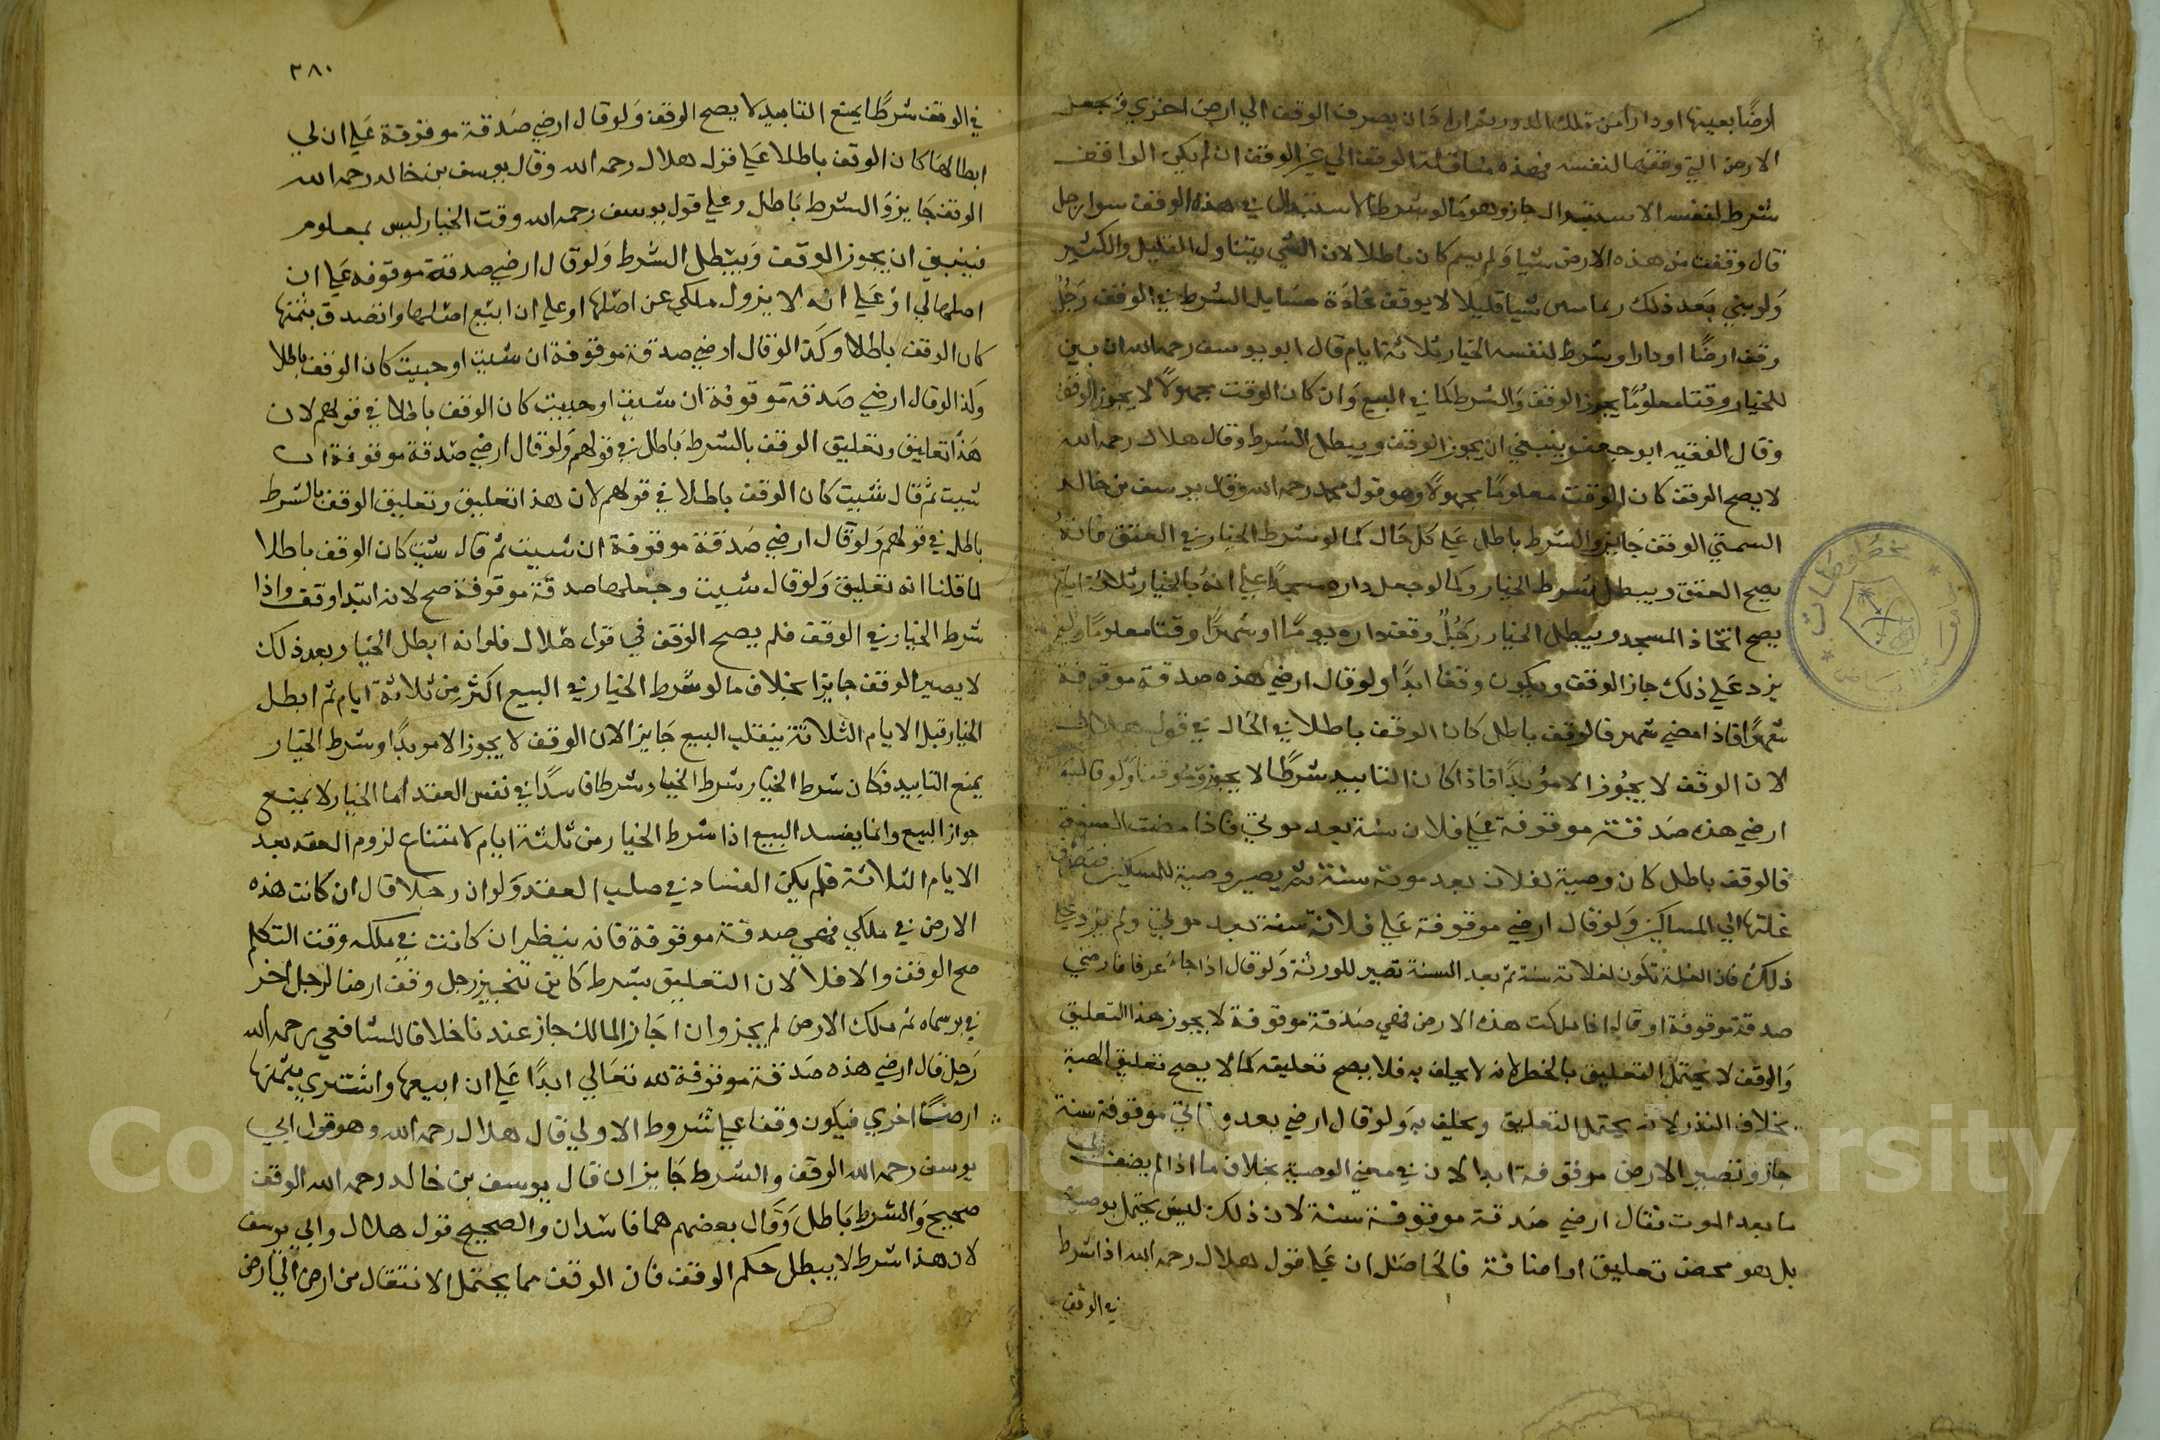 ارضا بعينها او دارا من تلك الدور ثم اراد ان يصرف الوقف الي ارض اخري ويجعل
الارض التي وقفها لنفسه فهذه مناقلة الوقف الي غير الوقف ان لم يكن الواقف
شرط لنفسه الاستبدال جاز وهو كما لو شرط الاستبدال في هذه الوقف سوا رجل
قال وقفت من هذه الارض شيا ولم يسم كان باطلا لان الشي يتناول القليل والكثير
ولو بين بعد ذلك ربما سمى شيا قليلا لا يوقف عادة مسايل الشرط في الوقف رجل
وقف ارضا او دارا وشرط لنفسه الخيار ثلاثة ايام قال ابو يوسف رحمه الله ان بين
للخيار وقتا معلوما يجوز الوقف والشرط كما في البيع وان كان الوقت مجهولا لا يجوز الوقف
وقال الفقيه ابو جعفر ينبغي ان يجوز الوقف ويبطل الشرط وقال هلال رحمه الله
لا يصح الوقف كان الوقت معلوما مجهولا وهو قول محمد رحمه الله وقال يوسف بن خالد
السمتي الوقف جايز والشرط باطل علي كل حال كما لو شرط الخيار في العتق فانه
يصح العتق ويبطل شرط الخيار وكما لو جعل داره مسجدا علي انه بالخيار ثلاثة ايام
يصح اتخاذ المسجد ويبطل الخيار رجل وقف داره يوما او شهرا وقتا معلوما ولم
يزد علي ذلك جاز الوقف ويكون وقفا ابدا ولو قال ارضي هذه صدقة موقوفة
شهرا فاذا مضي شهر فالوقف باطل كان الوقف باطلا في الحال في قول هلال
لان الوقف لا يجوز الا مؤبدا فاذا كان التابيد شرطا لا يجوز موقتا ولو قال
ارضي هذه صدقة موقوفة علي فلان سنة بعد موتي فاذا مضت السنة
فالوقف باطل كان وصية لفلان بعد موته سنة ثم يصير وصية للمساكين فتصرف
غلتها الي المساكين ولو قال ارضي موقوفة علي فلانة سنة بعد موتي ولم يزد علي
ذلك فان الغلة تكون لفلانة سنة ثم بعد السنة تصير للورثة ولو قال اذا جاء غد فارضي
صدقة موقوفة او قال اذا ملكت هذه الارض فهي صدقة موقوفة لا يجوز هذا التعليق
والوقف لا يحتمل التعليق بالخطر لانه لا يحلف به فلا يصح تعليقه كما لا يصح تعليق الهبة
بخلاف النذر لانه يحتمل التعليق ويحلف به ولو قال ارضي بعد وفاتي موقوفة سنة
جاز وتصير الارض موقوفة ابدا لان في معني الوصية بخلاف ما اذا لم يضف الى
ما بعد الموت فقال ارضي صدقة موقوفة سنة لان ذلك ليس يحتمل بوصية
بل هو محض تعليق او اضافة فالحاصل ان علي قول هلال رحمه الله اذا شرط
في الوقف
٣٨٠
في الوقف شرطا يمنع التابيد لا يصح الوقف ولو قال ارضي صدقة موقوفة علي ان لي
ابطالها كان الوقف باطلا علي قول هلال رحمه الله وقال يوسف بن خالد رحمه الله
الوقف جايز والشرط باطل وعلي قول يوسف رحمه الله وقت الخيار ليس بمعلوم
فينبغي ان يجوز الوقف ويبطل الشرط ولو قال ارضي صدقة موقوفة علي ان
اصلها لي او علي انه لا يزول ملكي عن اصلها او علي ان ابيع اصلها واتصدق بثمنها
كان الوقف باطلا وكذا لو قال ارضي صدقة موقوفة ان شيت او حبيت كان الوقف باطلا
وكذا لو قال ارضي صدقة موقوفة ان شيت او حبيت كان الوقف باطلا في قولهم لان
هذا تعليق وتعليق الوقف بالشرط باطل في قولهم ولو قال ارضي صدقة موقوفة ان
شيت ثم قال شيت كان الوقف باطلا في قولهم لان هذا تعليق وتعليق الوقف بالشرط
باطل في قولهم ولو قال ارضي صدقة موقوفة ان شيت ثم قال شيت كان الوقف باطلا
لما قلنا انه تعليق ولو قال شيت وجعلها صدقة موقوفة صح لانه ابتدا وقف واذا
شرط الخيار في الوقف فلم يصح الوقف في قول هلال فلو انه ابطل الخيار بعد ذلك
لا يصير الوقف جايزا بخلاف ما لو شرط الخيار في البيع اكثر من ثلاثة ايام ثم ابطل
الخيار قبل الايام الثلاثة ينقلب البيع جايزا لان الوقف لا يجوز الا موبدا وشرط الخيار
يمنع التابيد فكان شرط الخيار شرط الخيار شرطا فاسدا في نفس العقد اما الخيار لا يمنع
جواز البيع وانما يفسد البيع اذا شرط الخيار من ثلثة ايام لامتناع لزوم العقد بعد
الايام الثلاثة فلم يكن الفساد في صلب العقد ولو ان رجلا قال ان كانت هذه
الارض في ملكي فهي صدقة موقوفة فانه ينظر ان كانت في ملكه وقت التكلم
صح الوقف والا فلا لان التعليق بشرط كاين تنجيز رجل وقف ارضا لرجل اخر
في بر سماه ثم ملك الارض لم يجز وان اجاز المالك جاز عندنا خلافا للشافعي رحمه الله
رجل قال ارضي هذه صدقة موقوفة لله تعالي ابدا علي ان ابيعها واشتري بثمنها
ارضا اخري فيكون وقفا علي شروط الاولي قال هلال رحمه الله وهو قول ابي
يوسف رحمه الله الوقف والشرط جايزان قال يوسف بن خالد رحمه الله الوقف
صحيح والشرط باطل وقال بعضهم هما فاسدان والصحيح قول هلال وابي يوسف
لان هذا شرط لا يبطل حكم الوقف فان الوقف مما يحتمل الانتقال من ارض الي ارض